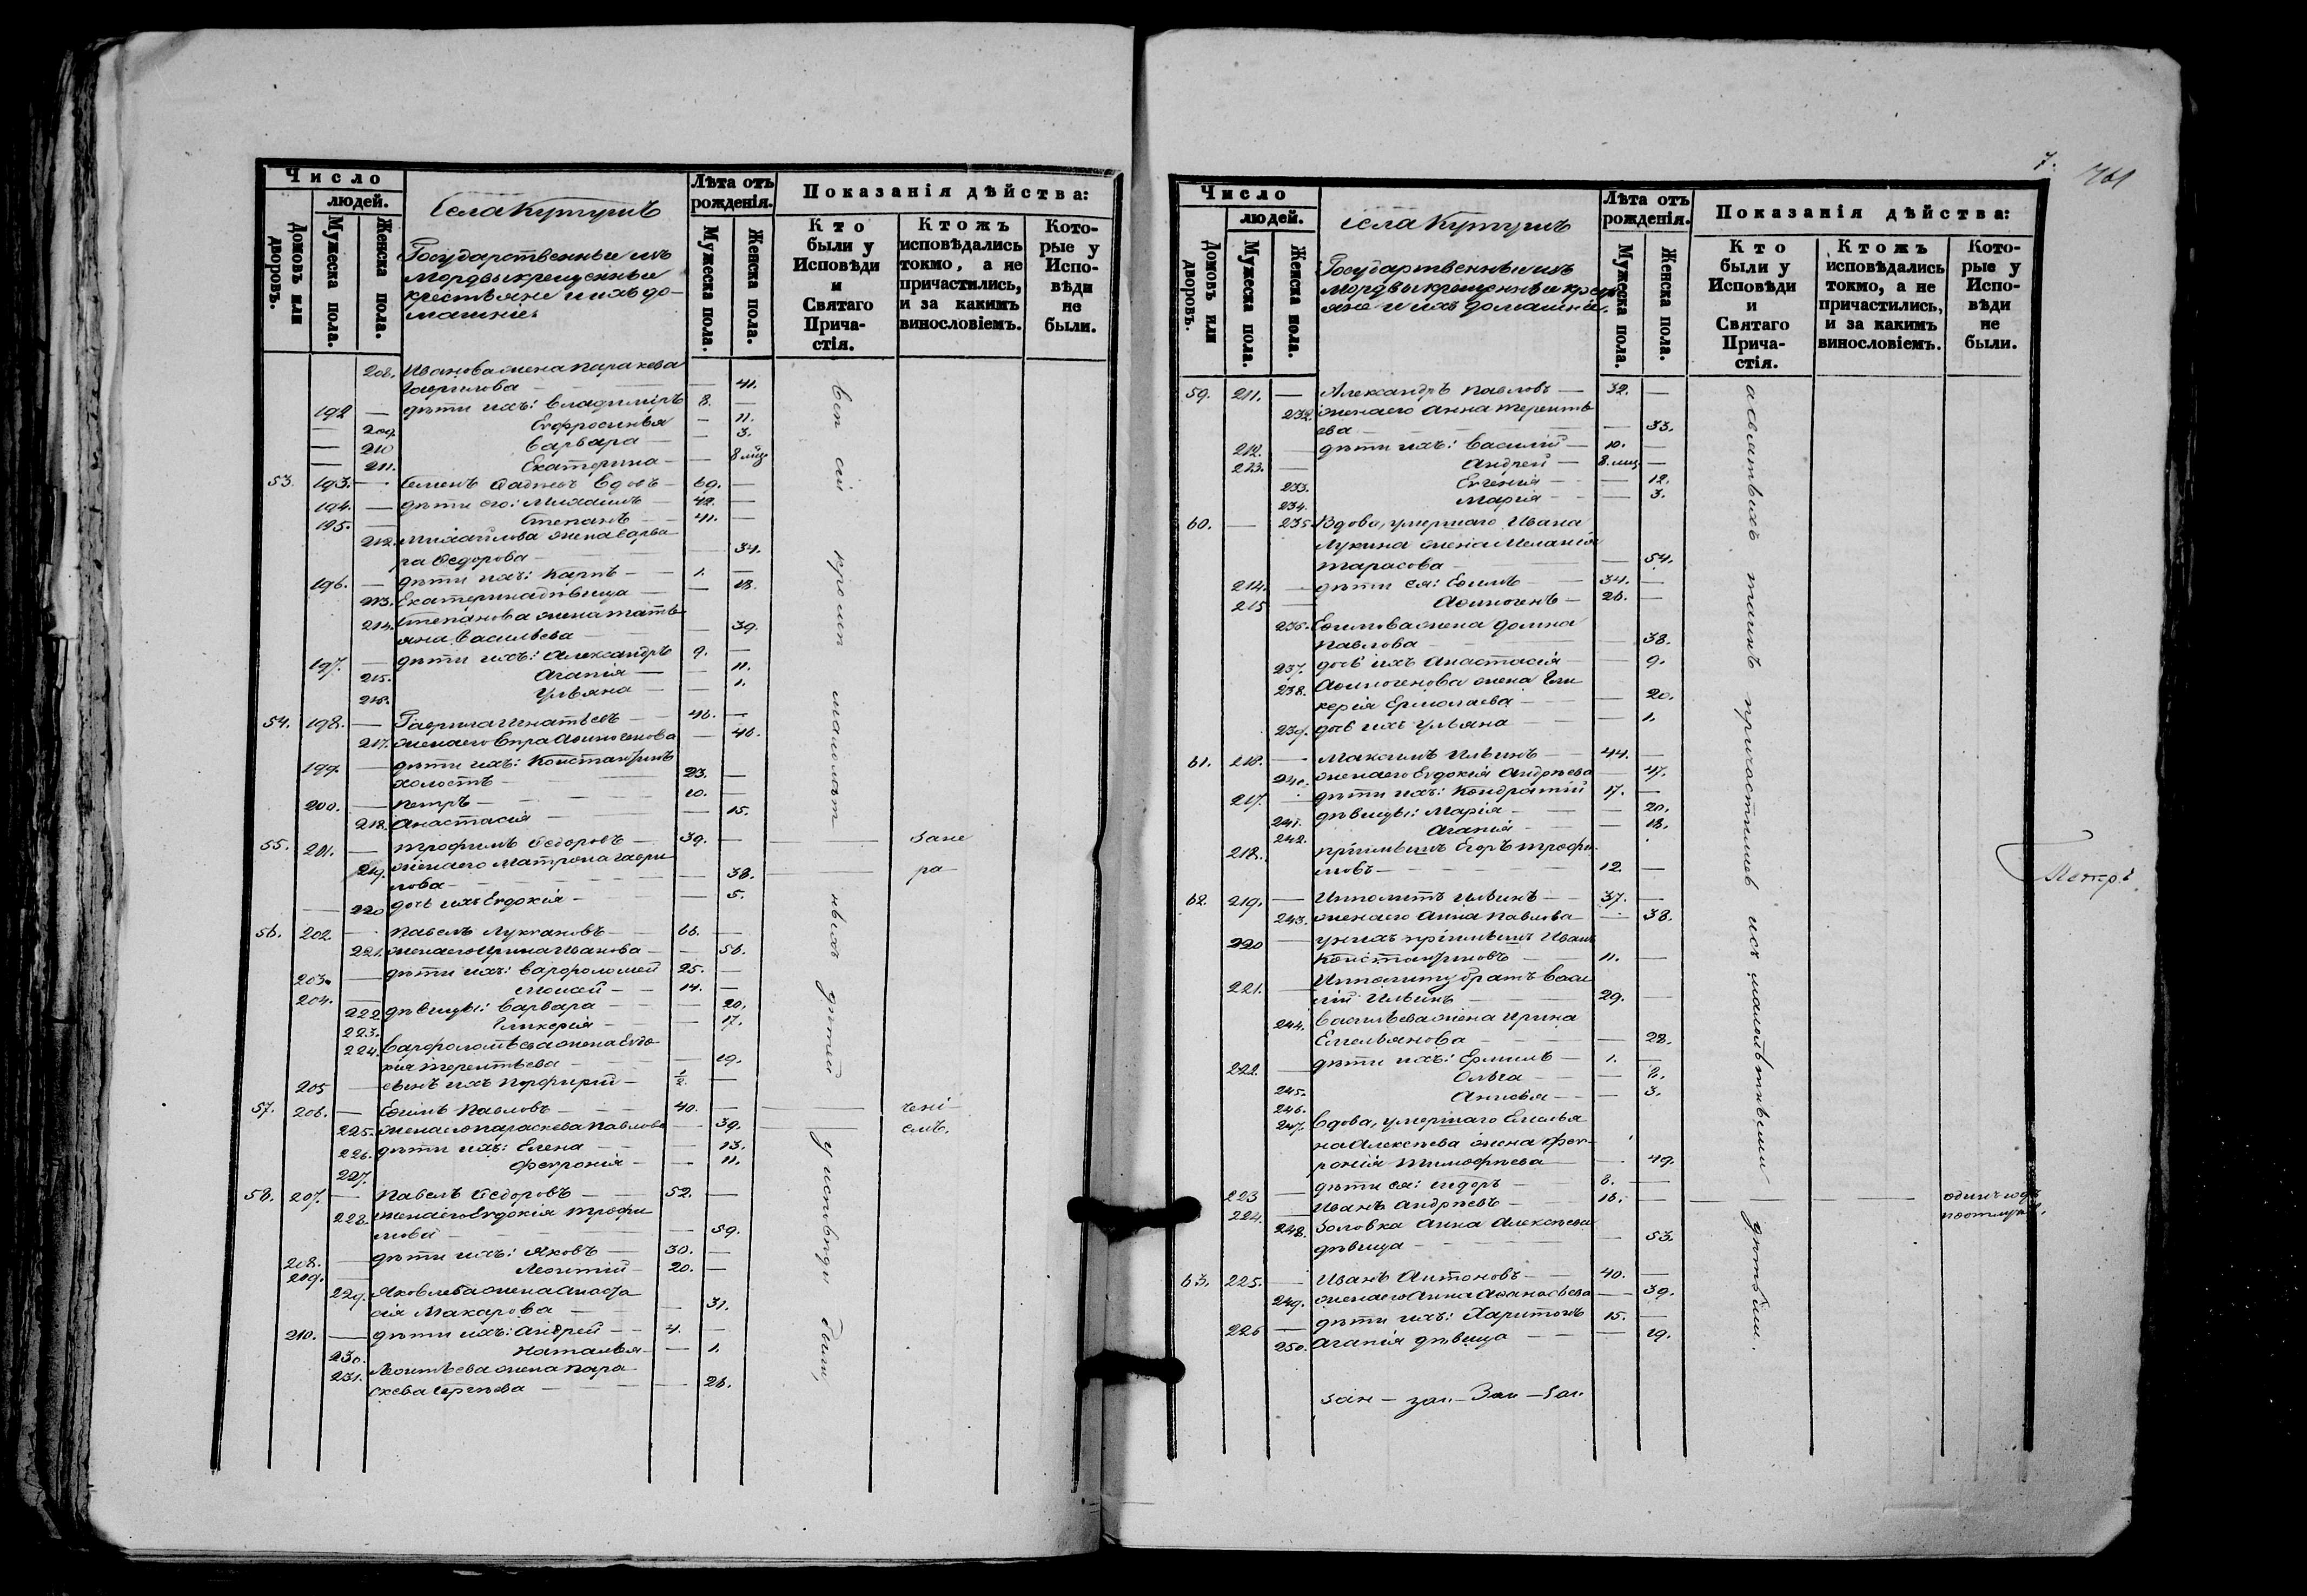 Число
людей.
Домовъ или дворовъ.
Мужеска пола.
Женска пола.
Села Кутушъ
Государственные изъ
Мордвы крещенные
крестьяне и ихъ до-
машніе.
Лѣта отъ рожденія.
Мужеска пола.
Женска пола.
Показанія дѣйства:
Кто были у Исповѣди и Святаго Прича-стія.
Ктожъ исповѣдались токмо, а не причастились, и за какимъ винословіемъ.
Кото-рые у Испо-вѣди не были.
208. Иванова жена Параскева
Гаврилова — — 41.
192 — дѣти ихъ: Владиміръ 8. —
— 209. Евфросинья — 11.
— 210 Варвара — — 3.
— 211. Екатерина — — 8 мѣц
53. 193. — Семенъ Вдовъ — 69. —
194. — дѣти его: Михаилъ — 42. —
195. — Степанъ — 41. —
212. Михайлова жена Варва
ра Ѳедорова — — 34.
196. — дѣти ихъ: Карпъ — 1. —
213. Екатерина дѣвица — — 18.
214. Степанова жена Татья
яна Васильева — — 39.
197. — дѣти ихъ: Александръ 9. —
215. Агапія — — 11.
216. Ульяна — — 1.
54. 198. — Гаврила Игнатьевъ — 46. —
217. жена его Вѣра Аѳиногенова — 46.
199. — дѣти ихъ: Константинъ
холостъ — 23. —
200. — Петръ — 10. —
218. Анастасія — — 15.
55. 201. — Трофимъ Ѳедоровъ — 39. — — Зане
219. жена его Матрона Гаври
лова — — 38. — ра
— 220 дочь ихъ Евдокія — — 5.
56. 202. — Павелъ Лукіановъ — 66. —
221. жена его Ирина Иванова — — 56.
203. — дѣти ихъ: Варфоломей 25. —
204. — Моисей — 14. —
222 дѣвицы: Варвара — — 20.
223. Гликерія — — 17.
224. Варфоломѣева жена Евдо
кія Терентьева — — 19.
205 — сынъ ихъ Порфирій — 1/2. —
57. 206. — Ефимъ Павловъ — 40. — — чені
225. жена его Параскева Павлова — 39. — емъ.
226. дѣти ихъ: Елена — — 13.
227. Февронія — — 11.
58. 207. — Павелъ Ѳедоровъ — 52. —
228. жена его Евдокія Трофи
мова — — 59.
208. — дѣти ихъ: Яковъ — 30. —
209. — Леонтій — 20. —
229. Яковлева жена Анаста
сія Макарова — — 31.
210. — дѣти ихъ: Андрей — 4. —
230. Наталья — — 1.
231. Леонтьева жена Пара
скева Сергѣева — — 26.
всѣ сіи кромѣ малолѣт-ныхъ дѣтей у исповѣди были,
7.
Число
людей.
Домовъ или дворовъ.
Мужеска пола.
Женска пола.
Села Кутушъ
Государственные изъ
Мордвы крещенные крес
яне и ихъ домашніе.
Лѣта отъ рожденія.
Мужеска пола.
Женска пола.
Показанія дѣйства:
Кто были у Исповѣди и Святаго Прича-стія.
Ктожъ исповѣдались токмо, а не причастились, и за какимъ винословіемъ.
Кото-рые у Испо-вѣди не были.
59. 211. — Александръ Павловъ — 32. —
232. жена его Анна Теренть
ева — — 33.
212. — дѣти ихъ: Василій — 10. —
213. — Андрей — 8. мѣц —
233. Евгенія — — 12.
234. Марія — — 3.
60. — 235. Вдова, умершаго Ивана
Лукина жена Меланія
Тарасова — — 54.
214. — дѣти ея: Ефимъ — 34. —
215 — Аѳиногенъ — 26. —
236. Ефимова жена Домна
Павлова — — 38.
237. дочь ихъ Анастасія — — 9.
238. Аѳиногенова жена Гли
керія Ермолаева — — 20.
239. дочь ихъ Ульяна — — 1.
61. 216. — Максимъ Ильинъ — 44. —
240. жена его Евдокія Андреева — 47.
217. — дѣти ихъ: Кондратій 17. —
241. дѣвицы: Марія — — 20.
242. Агапія — — 18.
218. пріимышъ Егоръ Трофи
мовъ — 12. —
62. 219. — Ипполитъ Ильинъ — 37. —
243. жена его Анна Павлова — — 38.
220 — у нихъ пріимышъ Иванъ
Константиновъ — 11. —
221. — Ипполиту братъ Васи
лій Ильинъ — 29. —
244. Васильева жена Ирина
Емельянова — — 28.
222. — дѣти ихъ: Ермилъ — 1. —
245. Ольга — — 8.
246. Анисья — — 3.
247. Вдова, умершаго Емелья
на Алексѣева жена Фев-
ронія Тимофѣева — — 49.
223 — дѣти ея: Сидоръ — 8. —
224. — Иванъ Андреевъ — 16. — — — одинъ годъ
по отлучкѣ.
248. Золовка Анна Алексѣева
дѣвица — — 53.
63. 225. — Иванъ Антоновъ — 40. —
249. жена его Анна Аѳанасьева — 39.
226 — дѣти ихъ: Харитонъ 15. —
250. Агапія дѣвица — — 19.
а Святыхъ таинъ причастились и съ малолѣтными дѣтьми.
Петръ